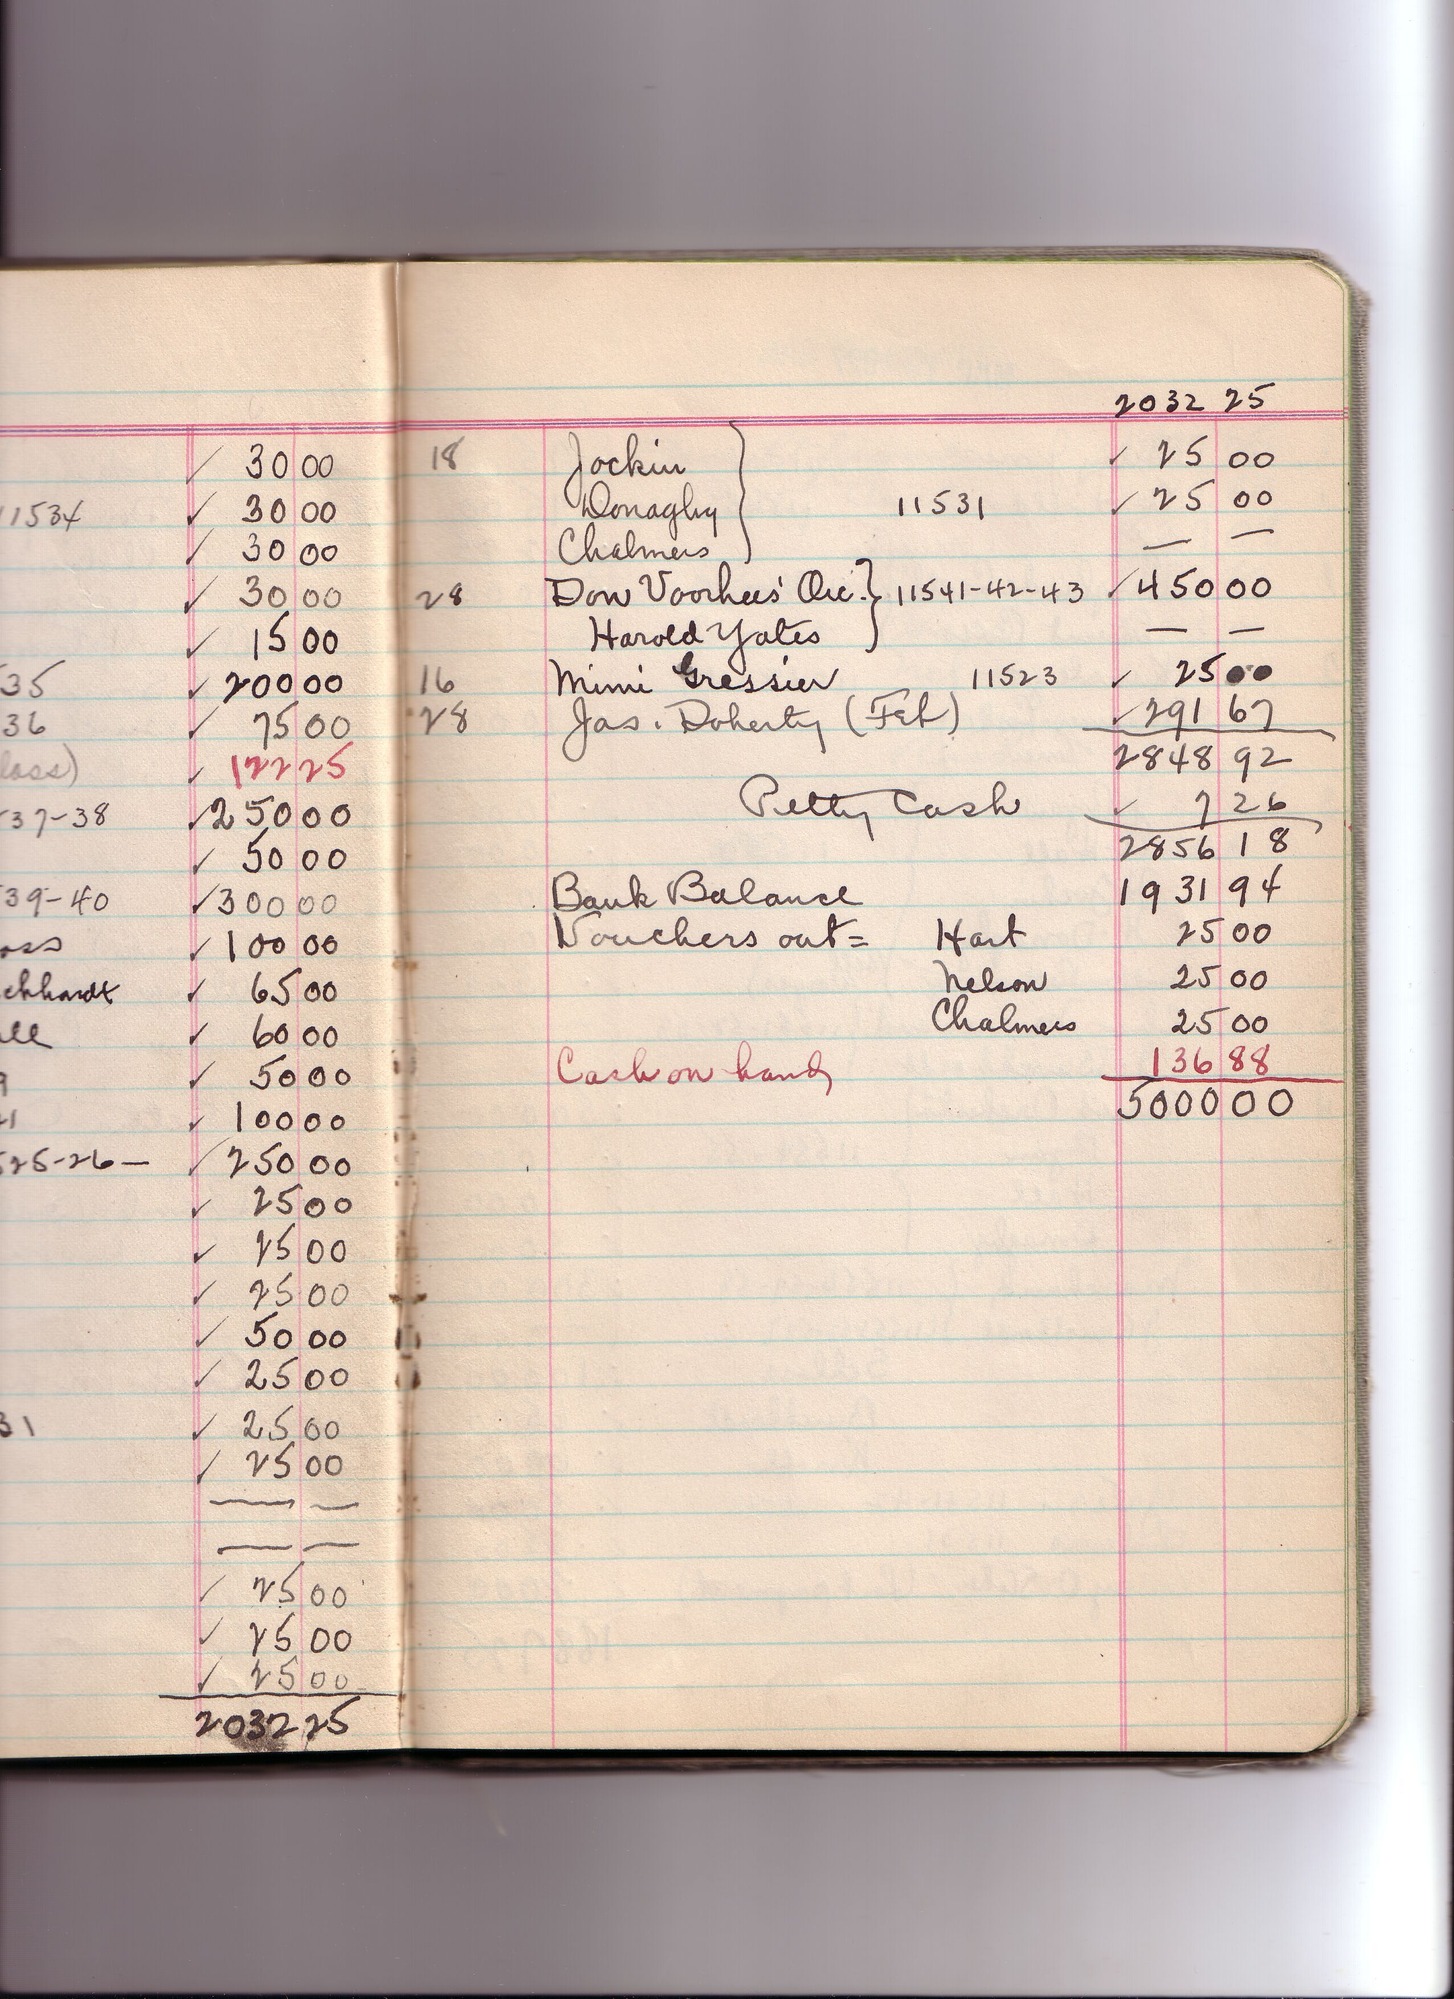 ✓ 30 00
11534 ✓ 30 00
✓ 30 00
✓ 30 00
✓ 15 00
35 ✓ 200 00
36 ✓ 75 00
✓ 122 25
37-38 ✓ 250 00
✓ 50 00
39-40 ✓ 300 00
oss ✓ 100 00
ckhardt ✓ 65 00
✓ 60 00
9 ✓ 50 00
✓ 100 00
525-26- ✓ 250 00
✓ 25 00
✓ 25 00
✓ 25 00
✓ 50 00
✓ 25 00
31 ✓ 25 00
✓ 25 00
— —
— —
✓ 25 00
✓ 25 00
✓ 25 00
2032 25
2032 25
18 Jockin ✓ 25 00
Donaghy 11531 ✓ 25 00
Chalmers — —
28 Don Voorhees' Orc. 11541-42-43 ✓ 450 00
Harold Yates — —
16 Mimi Gressier 11523 ✓ 25 00
28 Jas. Doherty (Feb) ✓ 291 67
2848 92
Petty Cash ✓ 7 26
2856 18
Bank Balance 1931 94
Vouchers out= Hart 25 00
Nelson 25 00
Chalmers 25 00
Cash on hand 136 88
5000 00